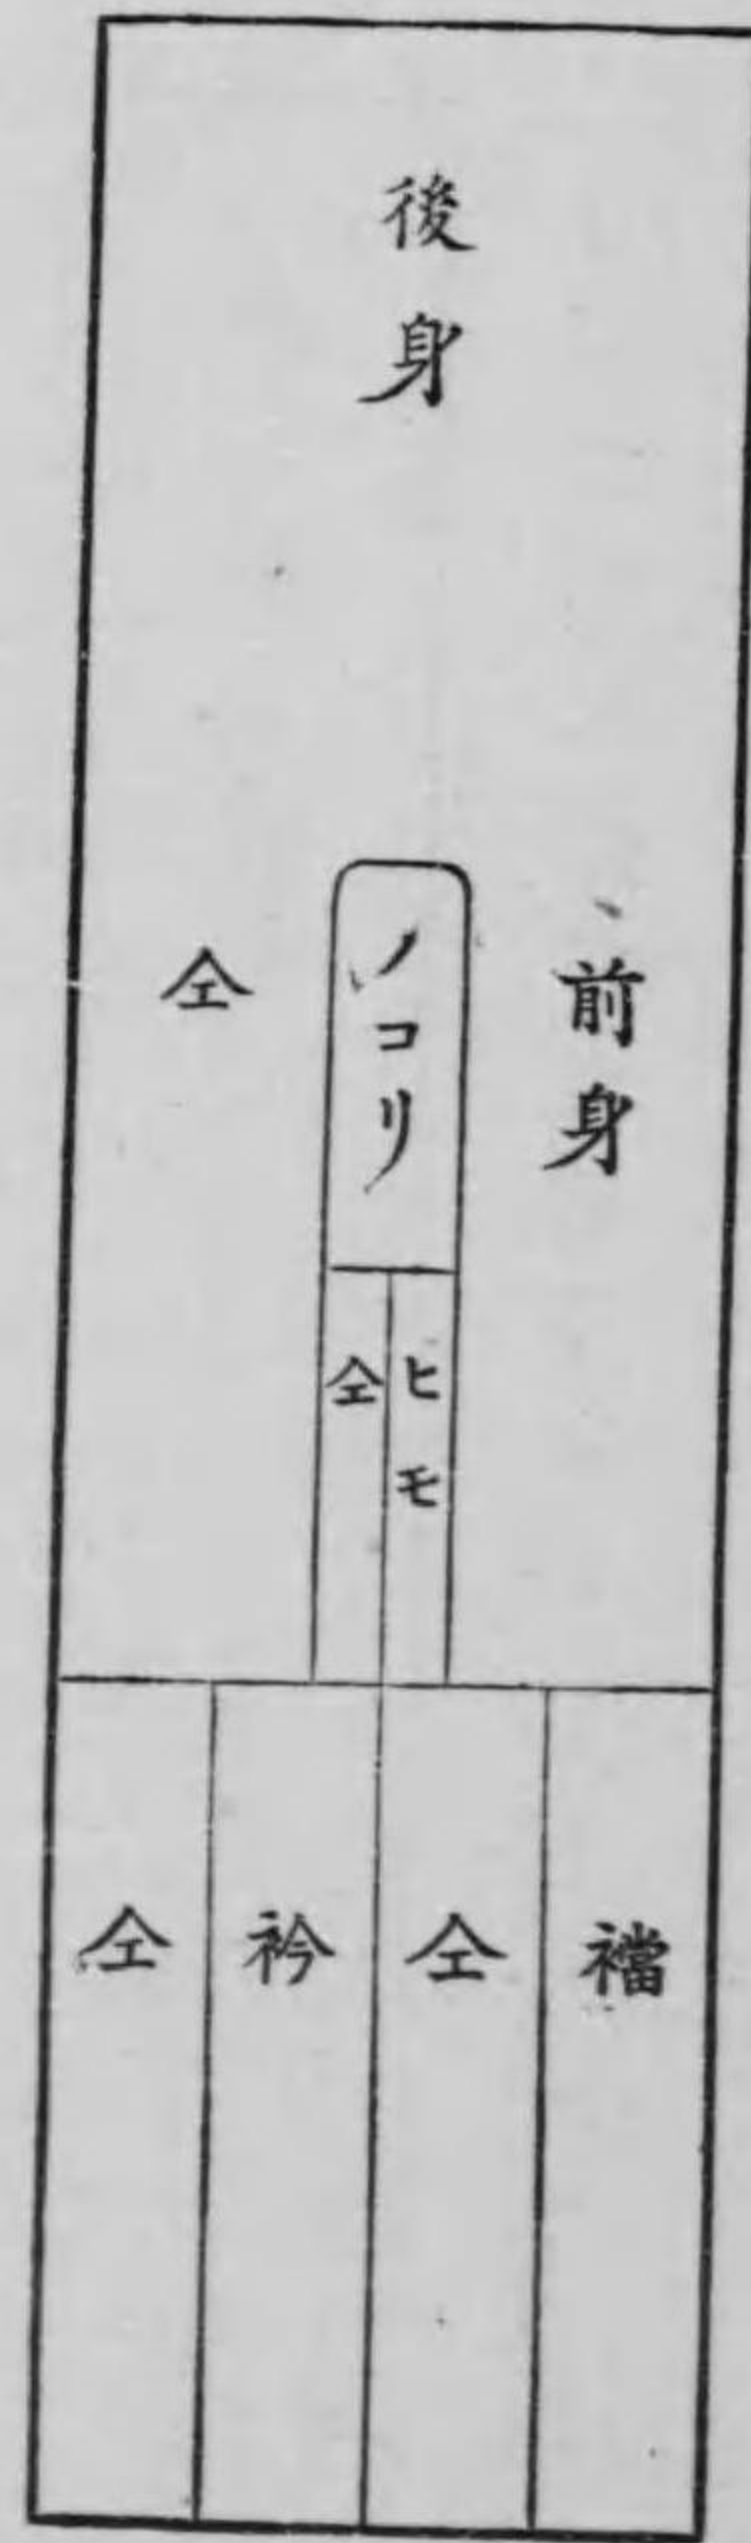 後身
前身
ノコリ
仝
ヒモ
仝
襠
仝
衿
仝